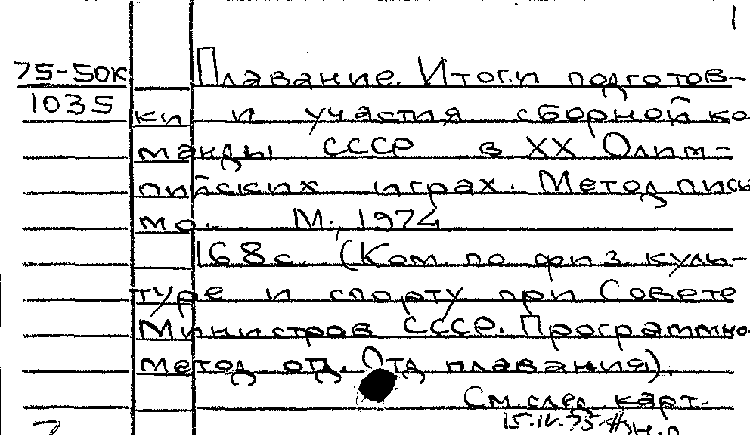 1
75-50к Плавание. Итоги подготов-
1035 ки и участия сборной ко
манды СССР в XX Олим-
пийских играх. Метод пись
мо. М., 1974
168с. (Ком по физ. куль-
туре и спорту при Совете
Министров СССР. Программно-
метод. отд. Отд плавания).
См. след карт.
15.IV.75